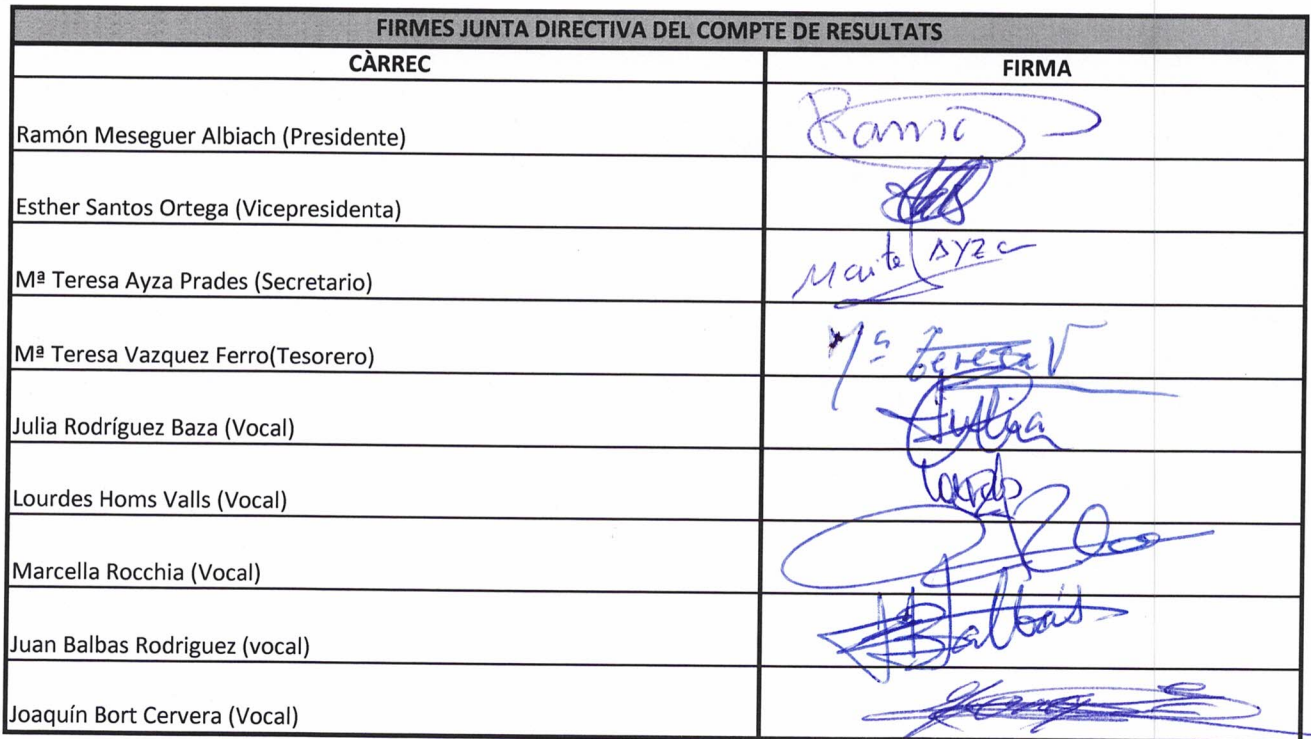 FIRMES JUNTA DIRECTIVA DEL COMPTE DE RESULTATS
CÀRREC FIRMA
Ramón Meseguer Albiach (Presidente) Ramó
Esther Santos Ortega (Vicepresidenta)
Mª Teresa Ayza Prades (Secretario) Maite Ayza
Mª Teresa Vazquez Ferro(Tesorero) Mª Teresa V
Julia Rodríguez Baza (Vocal) Julia
Lourdes Homs Valls (Vocal)
Marcella Rocchia (Vocal)
Juan Balbas Rodriguez (vocal) Balbás
Joaquín Bort Cervera (Vocal)